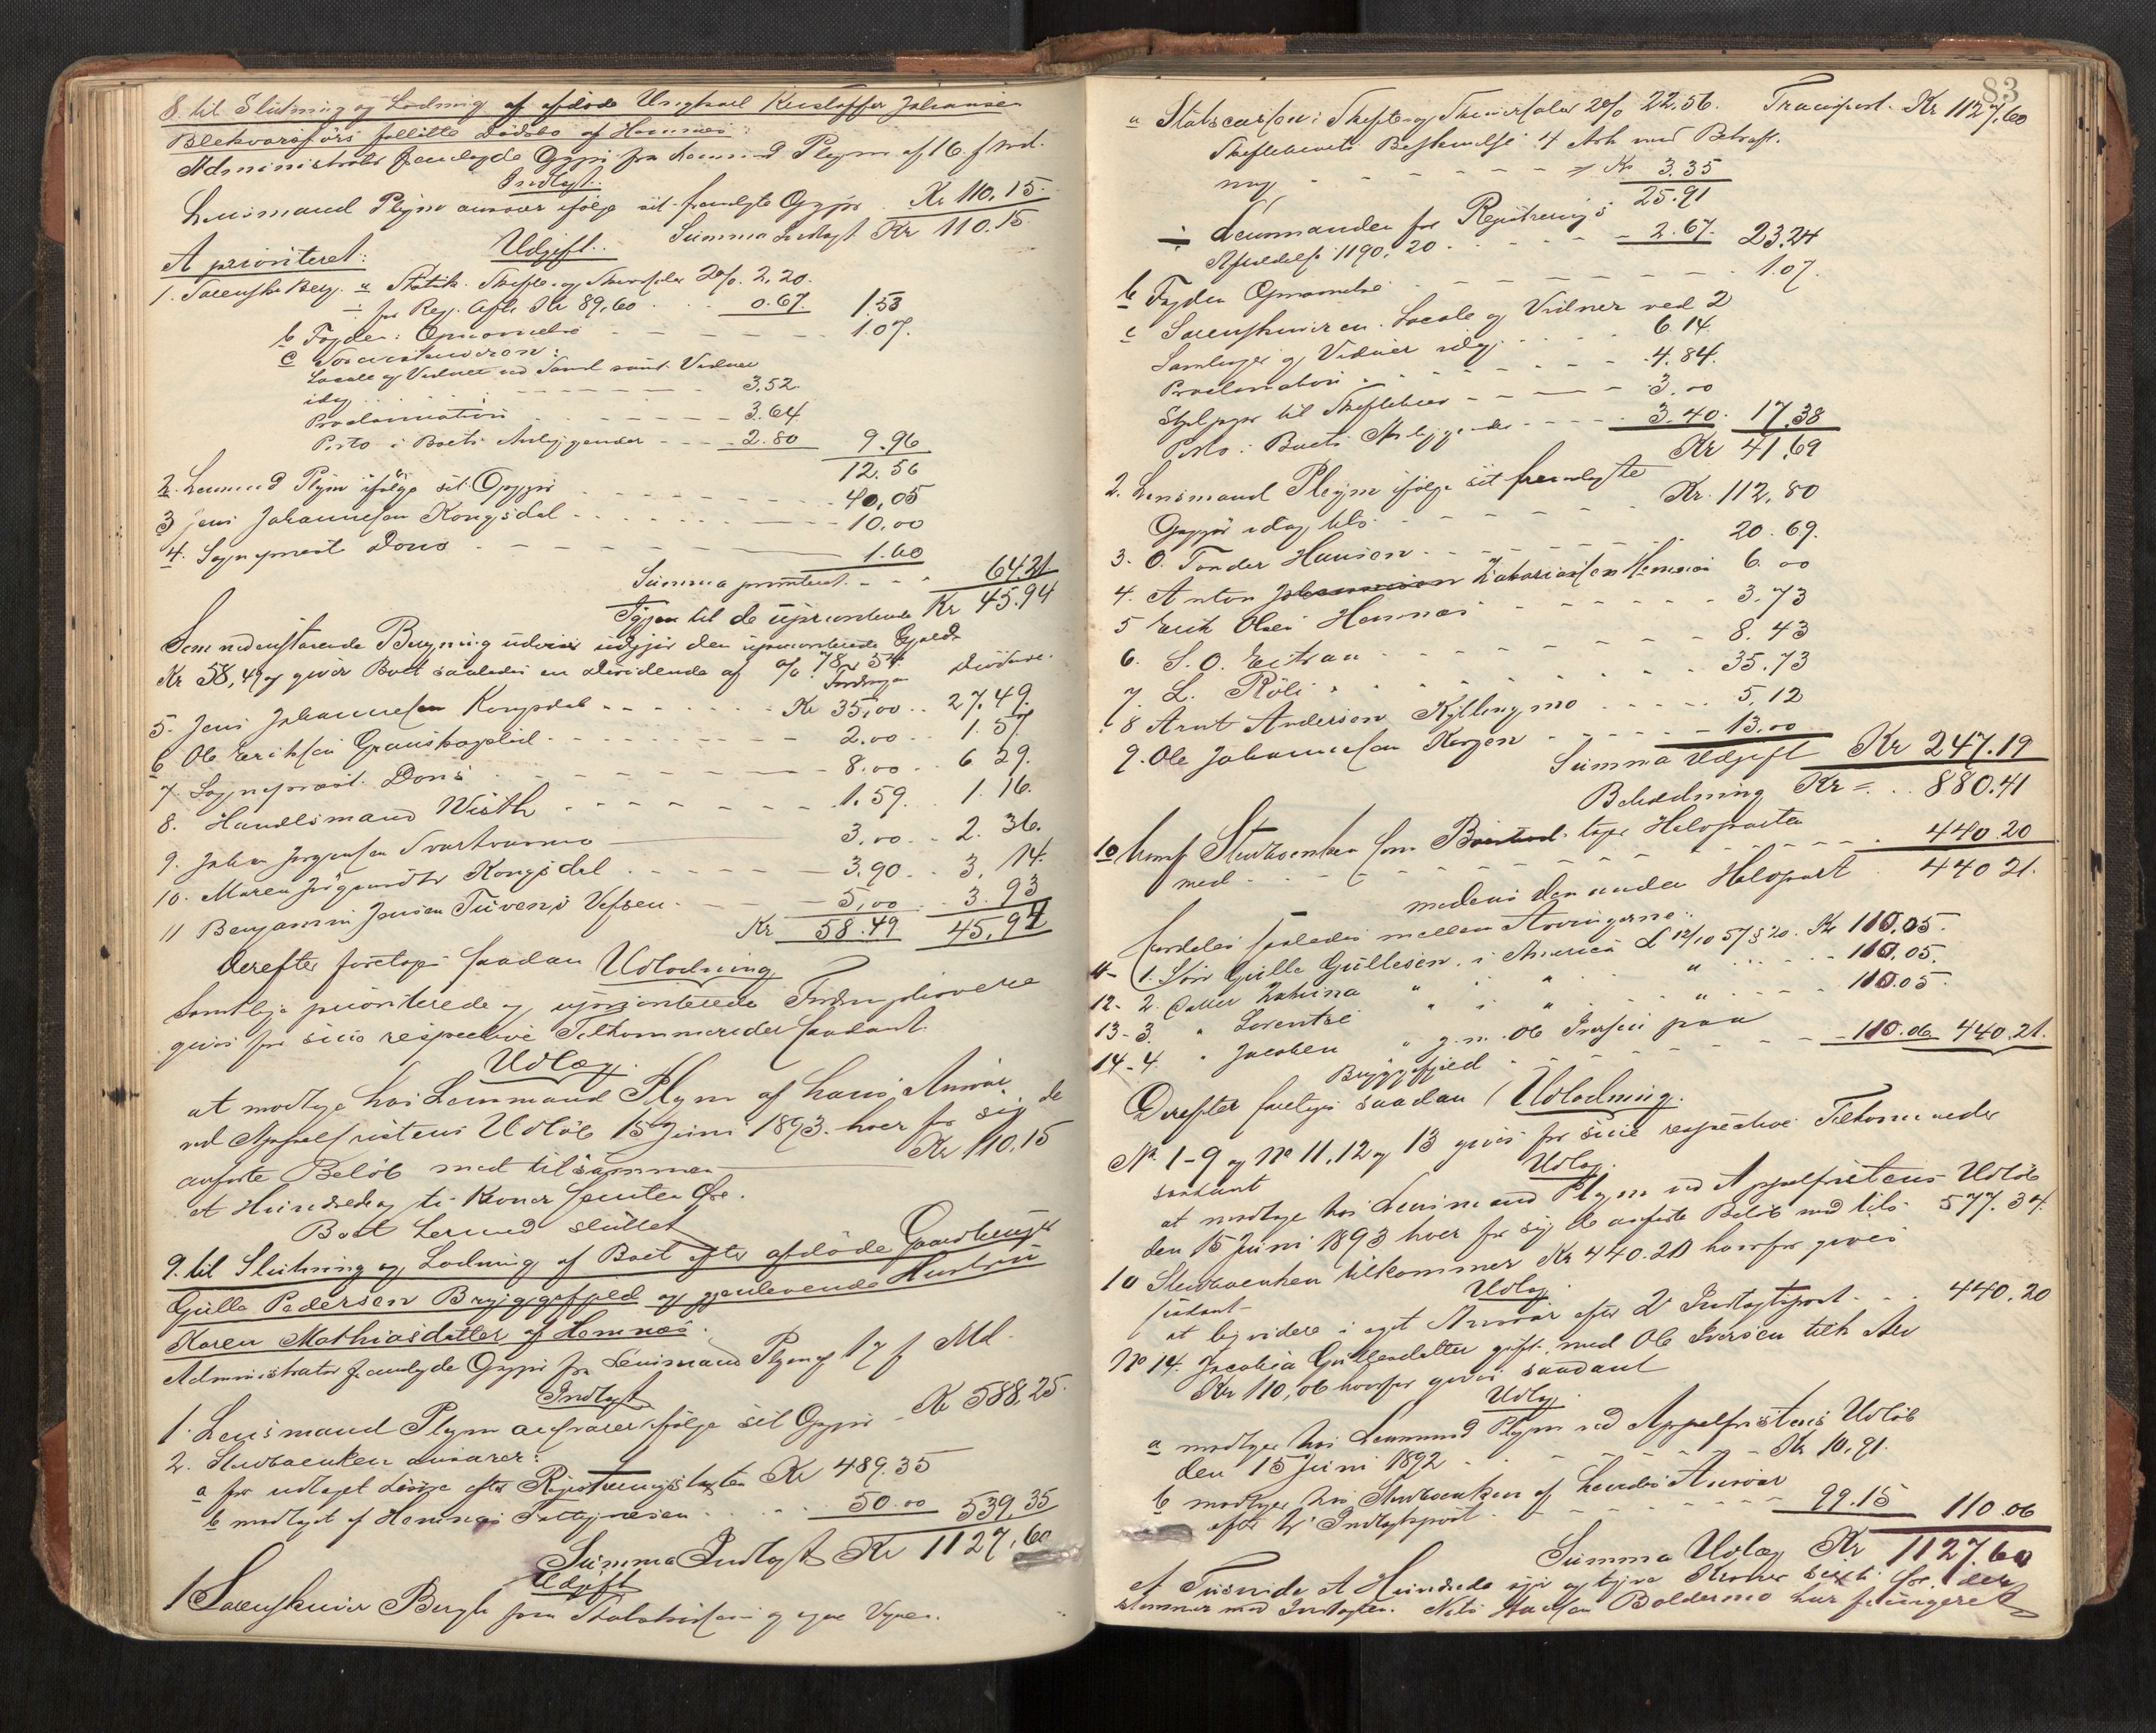 8. til Slutning og Lodning af afdøde Ungkarl Kristoffer Johansen
Blekvaresførs fallitte Dødsbo af Hemnæs:
Administrator fremlagde Opgjør fra Lensmand Plejm af 16. f. Md.
Indtægt:
Lensmand Plejm ansvarer ifølge sit fremlagte Opgjør . Kr 110,15.
Summa Indtægt Kr 110.15
Udgift:
A prioriteret:
1. Sorenskr. Berg. a Statsk. Skifte- og Skriversalær 2% 2,20.
÷ for Reg. Afh. Kr 89,60 . . 0.67. 1.53
b Fogden: Opnævnelse - - - - 1.07.
c Sorenskriveren:
Locale og Vidner ved Saml. samt Vidner
idag . . . 3,52.
Proclamation . . . 3.64
Porto i Boets Anliggender - - - 2.80 9.96
12.56
2. Lensmand Plejm ifølge sit Opgjør . . . 40,05
3 Jens Johannesen Kongsdal - - - 10,00
4. Sogneprest Dons - - - 1.60
Summa prioriteret - - - 64.21
Igjen til de uprioriterede Kr 45.94
Som nedenstaaende Beregning udviser udgjør den uprioriterede Gjæld
Kr 58,49 og giver Boet saaledes en Dividende af % 78,54
Fordringen Dividende.
5. Jens Johannesen Kongsdal - - - Kr 35,00 . . 27,49.
6 Ole Eriksen - - - 2.00 . . 1.57
7. Sogneprest Dons - - - 8.00 . . 6 29.
8. Handelsmand Wisth - - - 1.59. . 1.16.
9. Johan Jørgensen Svartvasmo 3,00 . . 2.36.
10. Maren Kongsdal - - - 3.90 . . 3,14.
11 Benjamin Jensen Vefsen - - - 5,00 . . 3.93
Kr 58.49 45,94
Derefter foretoges saadan Udlodning
Samtlige prioriterede og uprioriterede Fordringshavere
gives for sine respective Tilkommender saadant
Udlæg:
at modtage hos Lensmand Plejm af hans Ansvar
ved Appelfristens Udløb 15 Juni 1893. hver for sig de
anførte Beløb med tilsammen Kr 110.15
et Hundrede og ti Kroner femten Øre.
Boet hermed sluttet
9. til Slutning og Lodning af Boet efter afdøde Gaardbruger
Gulle Pedersen Bryggefjeld og gjenlevende Hustru
Karen Mathiasdatter af Hemnæs.
Administrator fremlagde Opgjør fra Lensmand Plejm af 17 f. Md.
Indtægt
1. Lensmand Plejm ansvarer ifølge sit Opgjør - Kr 588,25.
2. Stervboenken ansvarer:
a for udlaget Løsøre efter Registreringstaxten Kr 489.35
b modtaget af Hemnæs Fattigvæsen . . . 50.00 539,35
Summa Indtægt Kr 1127,60
Udgift
1 Sorenskriver Bergh for Statskassen og egne Vegne.
83
a Statscassen: Skifte- og Skriversalær 2% 22.56. Transport. Kr 1127,60
Skiftebrevets Beskrivelse 4 Ark med Bekræft.
ning - - - Kr 3.35
25.91
÷ Lensmanden for Registrerings
Afholdelse 1190,20 . . - 2.67. 23.24
b Fogden Opnævnelse - - - 1.07.
c Sorenskriveren. Locale og Vidner ved 2
Samlinger og Vidner idag . . . 6.14.
Proclamation . . . 4.84.
Stplpapir til Skiftebrev - - - 3.00
Porto i Boets Anliggender - - - 3.40. 17,38
Kr 41,69
2. Lensmand Plejm ifølge sit fremlagte
Opgjør idag tils. - - - Kr. 112,80
3. O. Tønder Hansen - - - 20.69.
4. Anton Zakariassen Hemnæs 6.00
5 Erik Olsen Hemnæs - - - 3.73
6. S. O. - - - 8.43
7. L. Röli . . . 35.73
8 Arnt Andersen Kyllingmo . . . 5,12
9. Ole Johannesen - - - 13.00
Summa Udgift Kr 247.19
Beholdning Kr = . . 880.41
10 hvoraf Stervboenken som tager Halvparten
med - - - 440.20
medens den anden Halvpart . 440 21.
fordeles saaledes mellem Arvingerne:
11 - 1. Søn Gulle Gullesen i America L 12/10 57 § 20. Kr 110,05.
12 - 2. Datter " " " " - - - 110,05.
13 - 3. " Lorentse " i " " - - - 110.05.
14 - 4. " Jacobea " g. m. Ole Iversen paa
Bryggefjeld - - - 110.06 440.21.
Derefter foretoges saadan Udlodning.
No. 1-9 og No 11, 12 og 13 gives for sine respective Tilkommender
saadant Udlæg:
at modtage hos Lensmand Plejm ved Appelfristens Udløb
den 15 Juni 1893 hver for sig de anførte Beløb med tils. 577.34.
10 Stervboenken tilkommer Kr 440.20 hvorfor gives
saadant Udlæg:
at lægvidere i eget Ansvar efter 2' Indtægtspost - . . 440.20
No 14. Jacobea Gullesdatter gift med Ole Iversen tilk. Arv
Kr 110,06 hvorfor gives saadant
Udlæg:
a modtager hos Lensmand Plejm ved Appelfristens Udløb
den 15 Juni 1892 - - - Kr 10,91.
b modtager hos Stervboenken af hendes Ansvar
efter 2' Indtægtspost - - - 99.15 110.06
Summa Udlæg Kr 1127.60
et Tusinde et Hundrede syv og tyve Kroner sexti Øre. der
stemmer med Indtægten. Nils Boldermo har fungeret